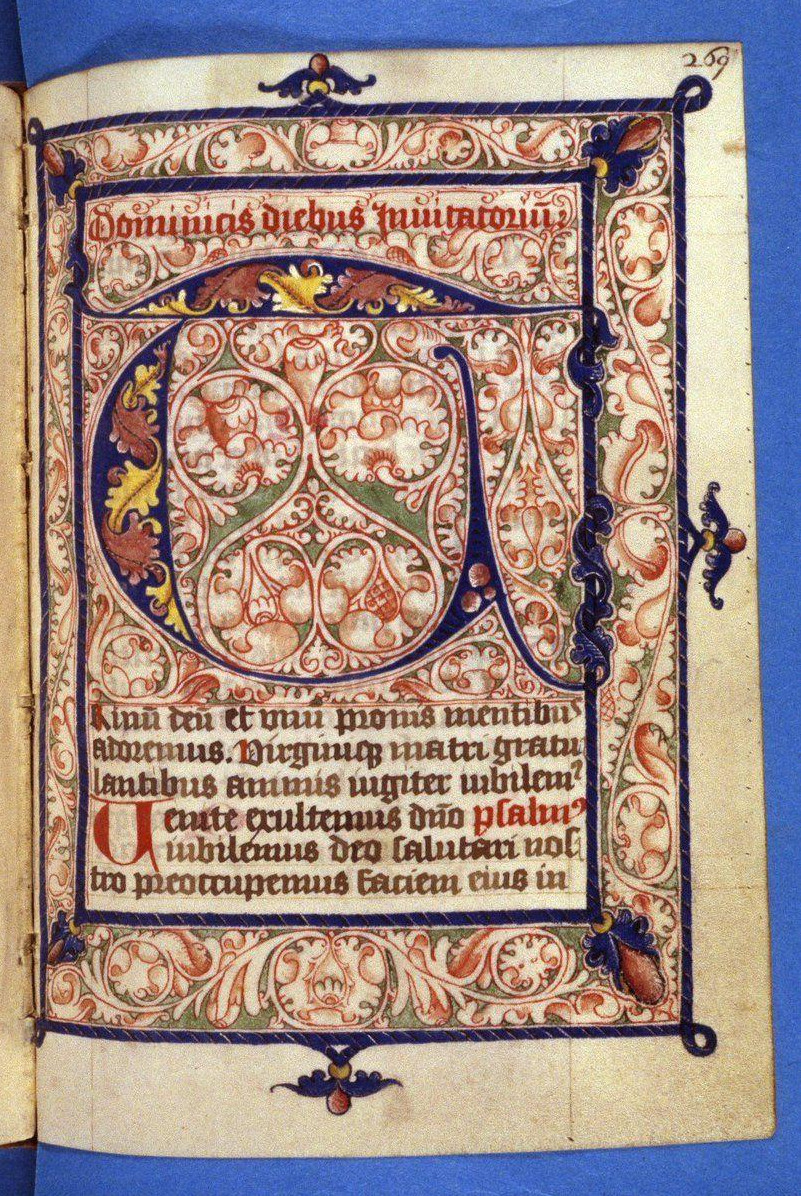 269
Dominicis diebus Inuitatoriū;
T
Rinū deū et vnū pronis mentibus
adoremus. Virginiq; matri gratu
lantibus animis iugiter iubilem⁹
Uenite exultemus dn̄o psalm⁹
iubilemus deo salutari nos
tro preoccupemus faciem eius in